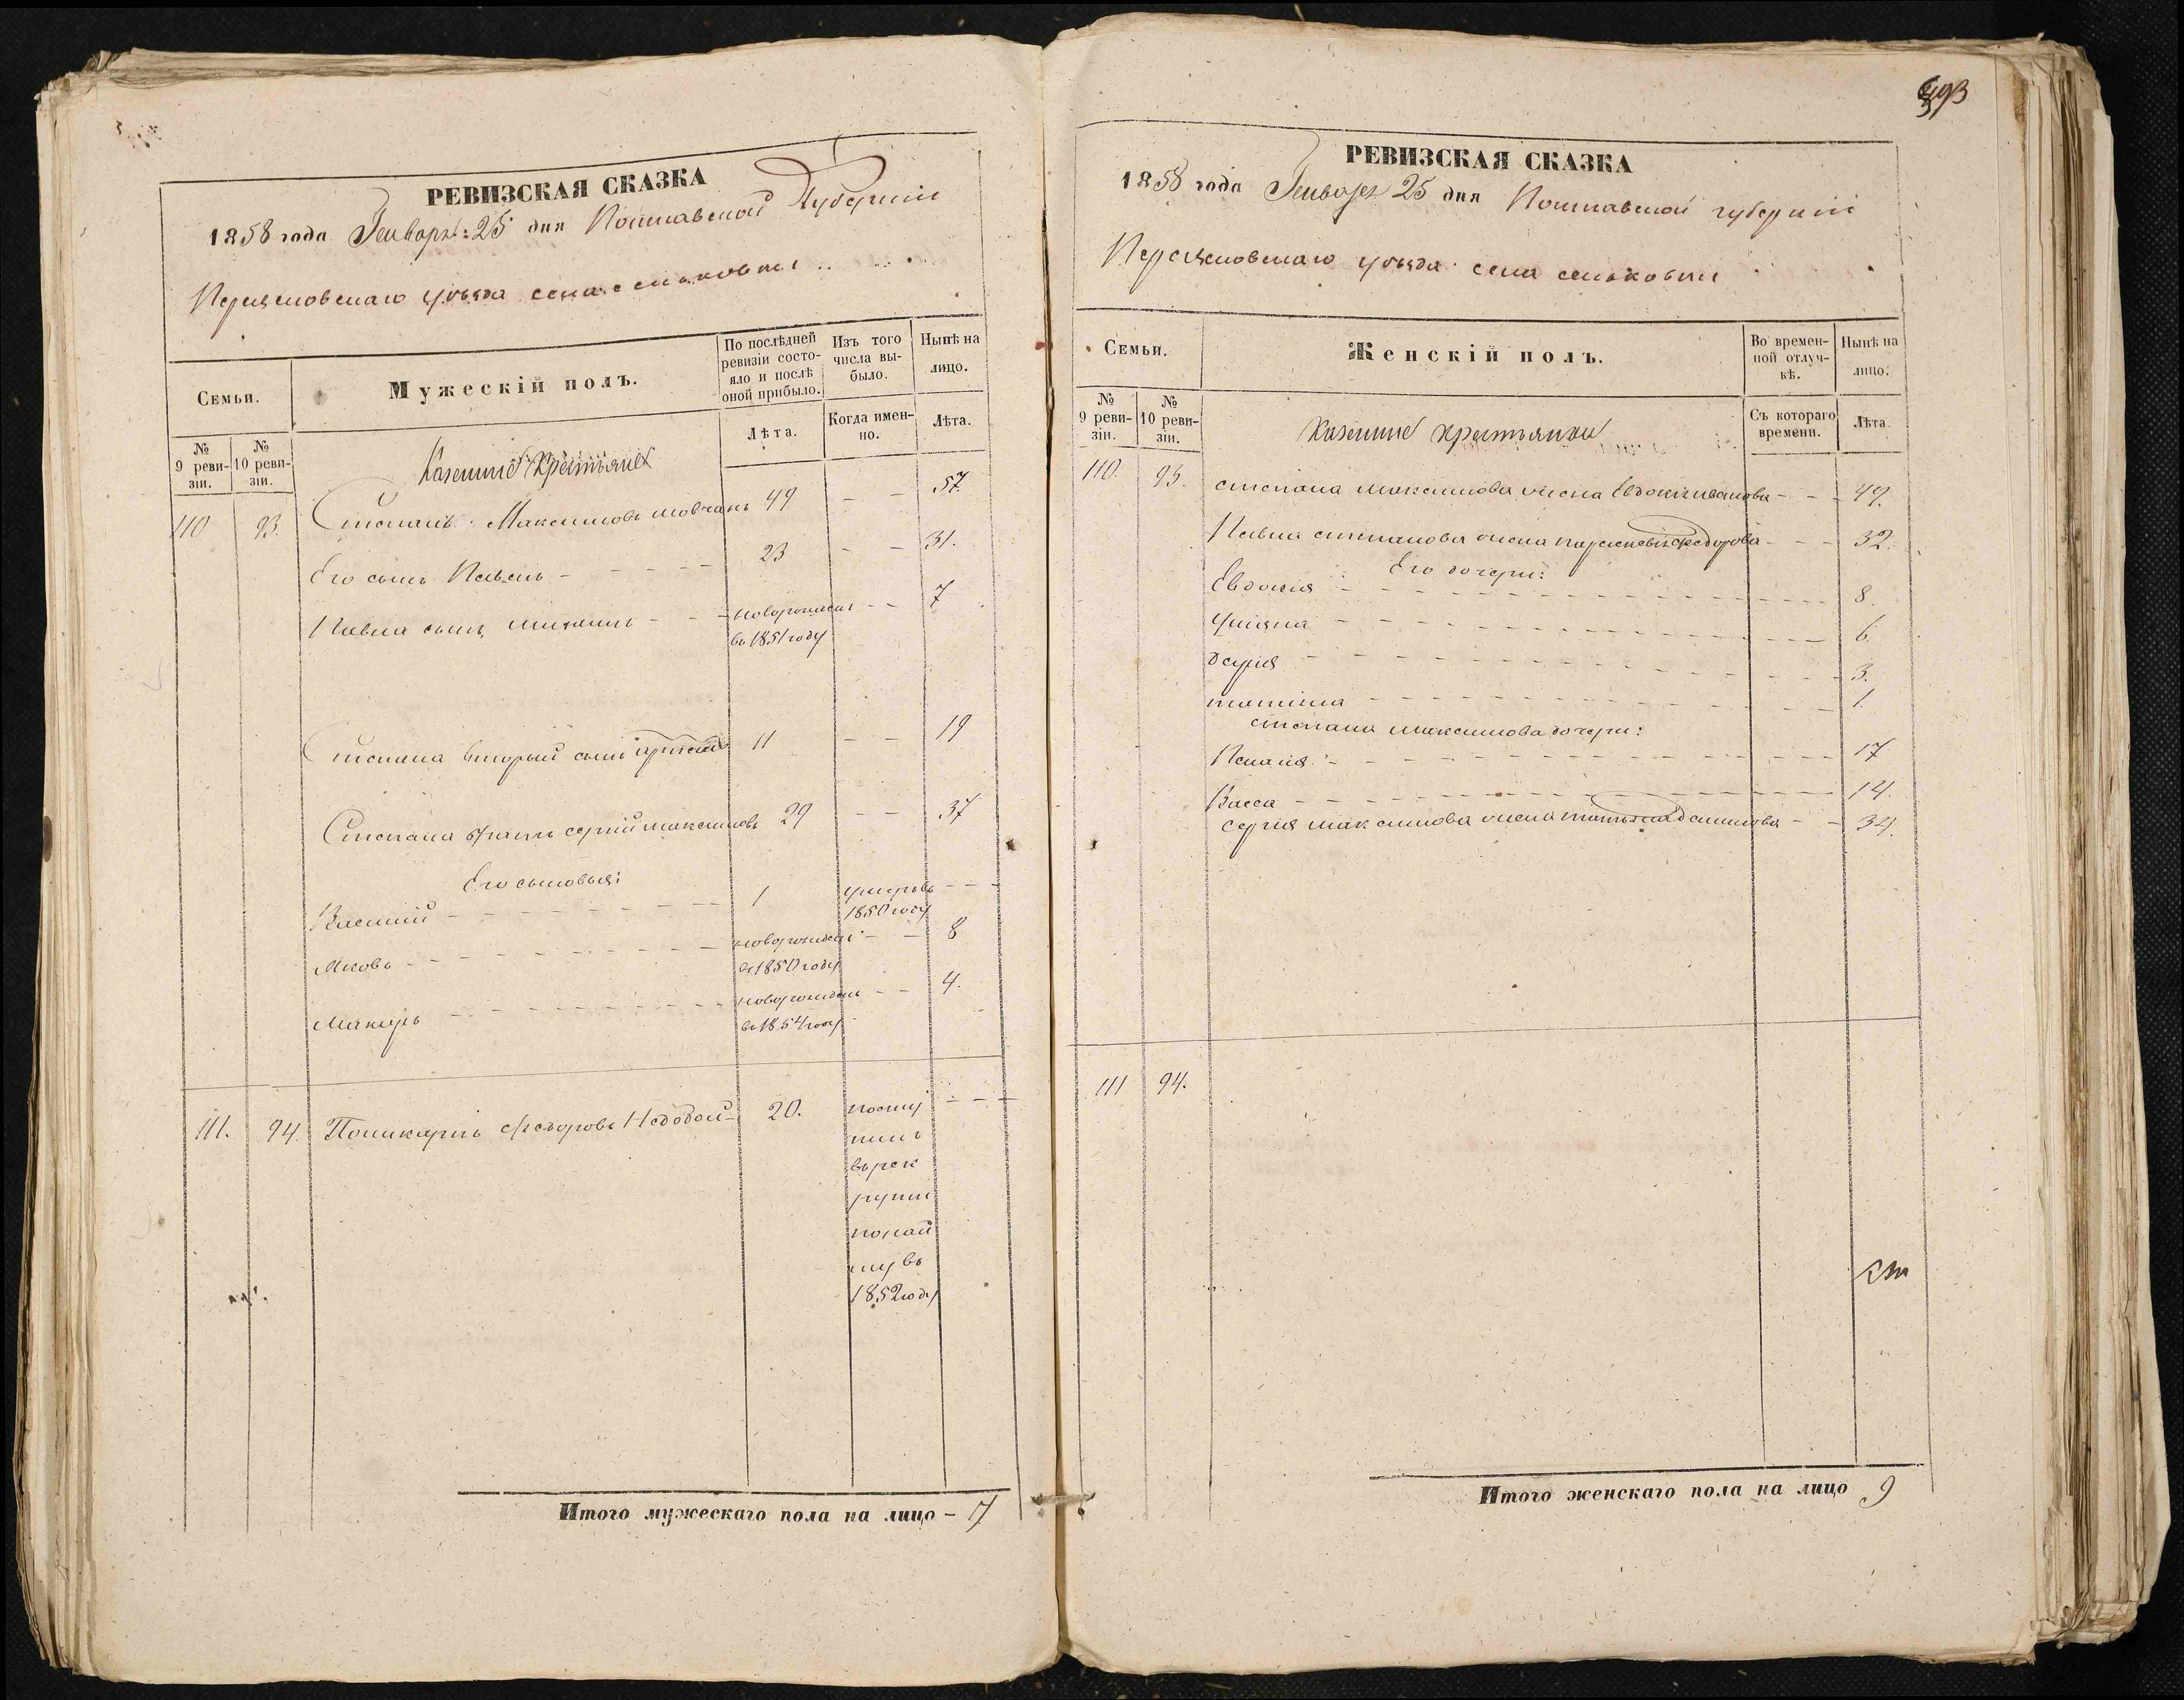 РЕВИЗСКАЯ СКАЗКА
1858 года Генваря 25 дня Полтавской Губерніи
Переяславскаго уѣзда села сеньковки
Семьи.
Мужескій полъ.
По послѣдней ревизіи состояло и послѣ оной прибыло.
Изъ того числа выбыло.
Нынѣ на лицо.
№ 9 ревизіи.
№ 10 ревизіи.
Лѣта.
Когда именно.
Лѣта.
Казенные Крестьяне
110 93. Степанъ Максимовъ Мовчанъ 49 - - 57.
Его сынъ Павелъ - - - - 23 - - 31.
Павла сынъ Михаилъ - - - новорожденъ - - 7
въ 1851 году
Степана вторый сынъ 11 - - 19
Степана братъ сергій максимовъ 29 - - 37
Его сыновья:
Василий - - - - 1 умеръ въ - - -
1850 году
Яковъ - - - - новорожденъ - - 8
въ 1850 году
Макаръ - - - - новорожденъ - - 4.
въ 1854 году
111. 94. Поликарпъ Федоровъ 20. посту - - -
пилъ
въ рек
руты
по най
му въ
1852 году
Итого мужескаго пола на лицо - 7
493
РЕВИЗСКАЯ СКАЗКА
1858 года Генваря 25 дня Полтавской губерніи
Переяславскаго уѣзда села сеньковки
Семьи.
Женскій полъ.
Во временной отлучкѣ.
Нынѣ на лицо.
№ 9 ревизіи.
№ 10 ревизіи.
Съ котораго времени.
Лѣта.
Казенные крестьянки
110. 93. степана максимова жена Евдокія иванова - - - 49.
Павла степанова жена параскевія федорова - - - 32.
Его дочери:
Евдокия - - - - 8.
Ульяна - - - - 6.
дарія - - - - 3.
татіяна - - - - 1.
степана максимова дочери:
Пелагія - - - - 17
Васса - - - - 14.
сергія максимова жена татьяна данилова - - 34.
111 94.
Итого женскаго пола на лицо 9